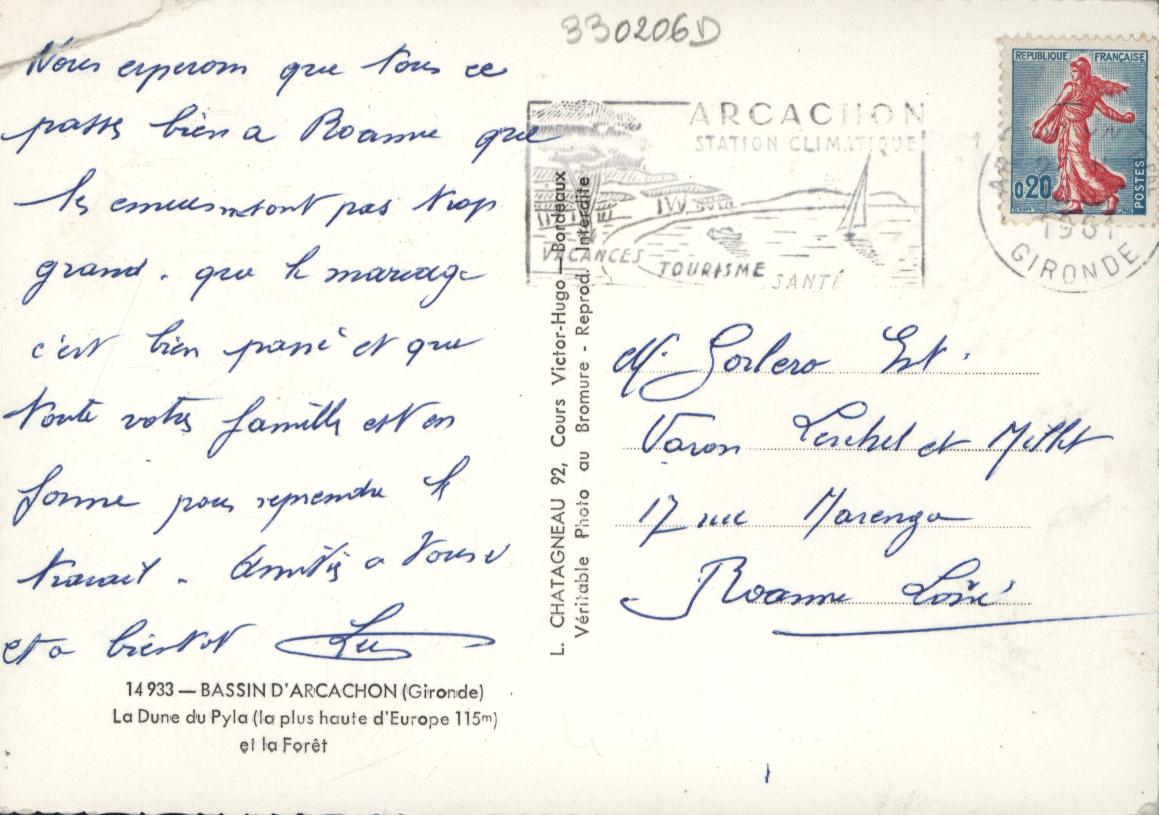 330206D
Nous esperom que tous ce
passe bien a Roanne que
les ennuis ne sont pas trop
grand. que le mariage
c'est bien passé et que
toute votre famille est en
forme pour reprendre le
travail. Amitiés a tous
et a bientot
14 933 — BASSIN D'ARCACHON (Gironde)
La Dune du Pyla (la plus haute d'Europe 115m)
et la Forêt
L. CHATAGNEAU 92, Cours Victor-Hugo — Bordeaux
Véritable Photo au Bromure - Reprod. Interdite
ARCACHON
STATION CLIMATIQUE
VACANCES TOURISME SANTÉ
REPUBLIQUE FRANÇAISE
0,20
POSTES
1961
GIRONDE
M. Gorlero Ent.
Varon Lerchel et Millet
17 rue Marengo
Roanne Loire